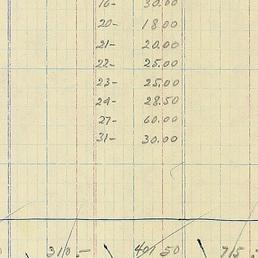 16- 30.00
20- 18.00
21- 20.00
22- 25.00
23- 25.00
24- 28.50
27- 60.00
31- 30.00
310.- 401 50 715